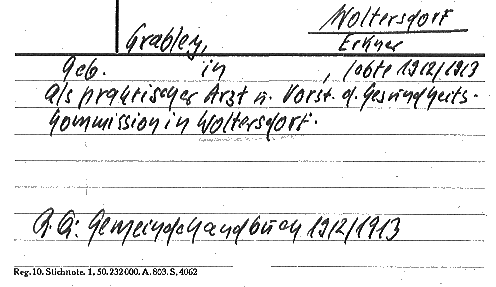 Woltersdorf
Grabley, Erkner
geb. in , lebte 1912/1913
als praktischer Arzt u. Vorst. d. Gesundheits-
kommission in Woltersdorf.
Q.Q: Gemeindehandbuch 1912/1913
Reg. 10. Stichnote. 1. 50. 232000. A. 803. S. 4062